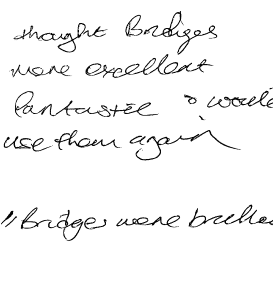 thought Bridges
were excellent
fantastic & would
use them again
"Bridges were brillia